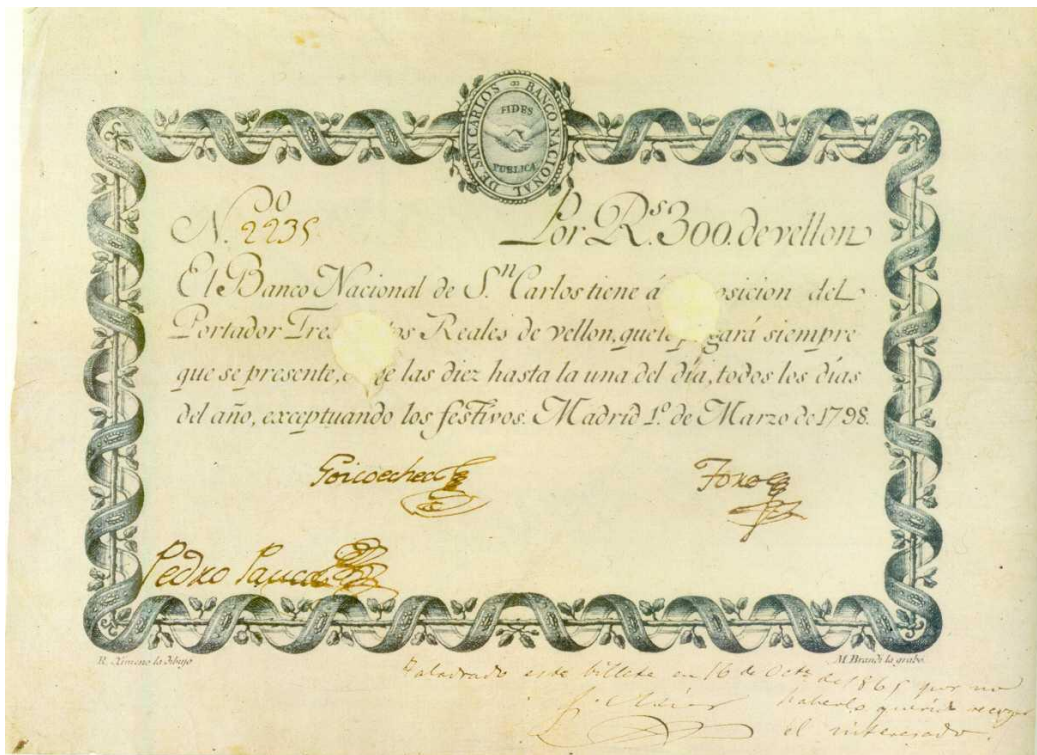 BANCO NACIONAL DE SAN CARLOS
FIDES
PUBLICA
N.º 2235 Por R.s 300. de vellon
El Banco Nacional de S.n Carlos tiene á osicion del
Portador Tres os Reales de vellon, que le gará siempre
que se presente, e las diez hasta la una del día, todos los días
del año, exceptuando los festivos. Madrid 1.º de Marzo de 1798.
Goicoechea
Pedro
R. Ximeno la dibujo M. Brandi la grabo.
Taladrado este billete en 16 de Octe de 1865 por no
haberlo querido recoger
el interesado.